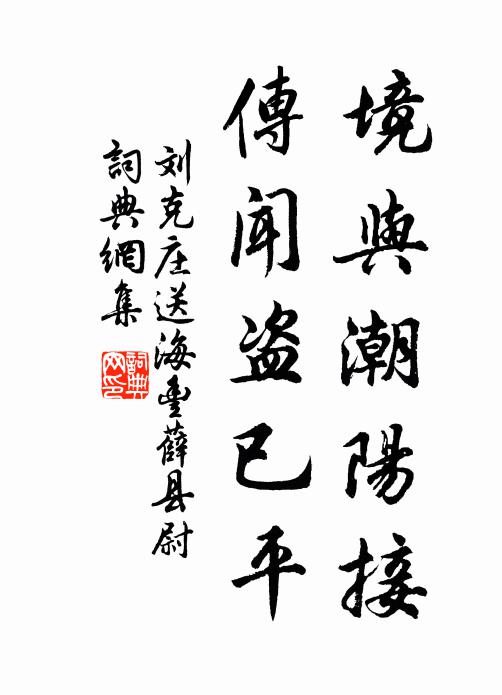 境與潮陽接
傳聞盜已平
刘克庄送海豐薛县尉
詞典網集
詞典網印